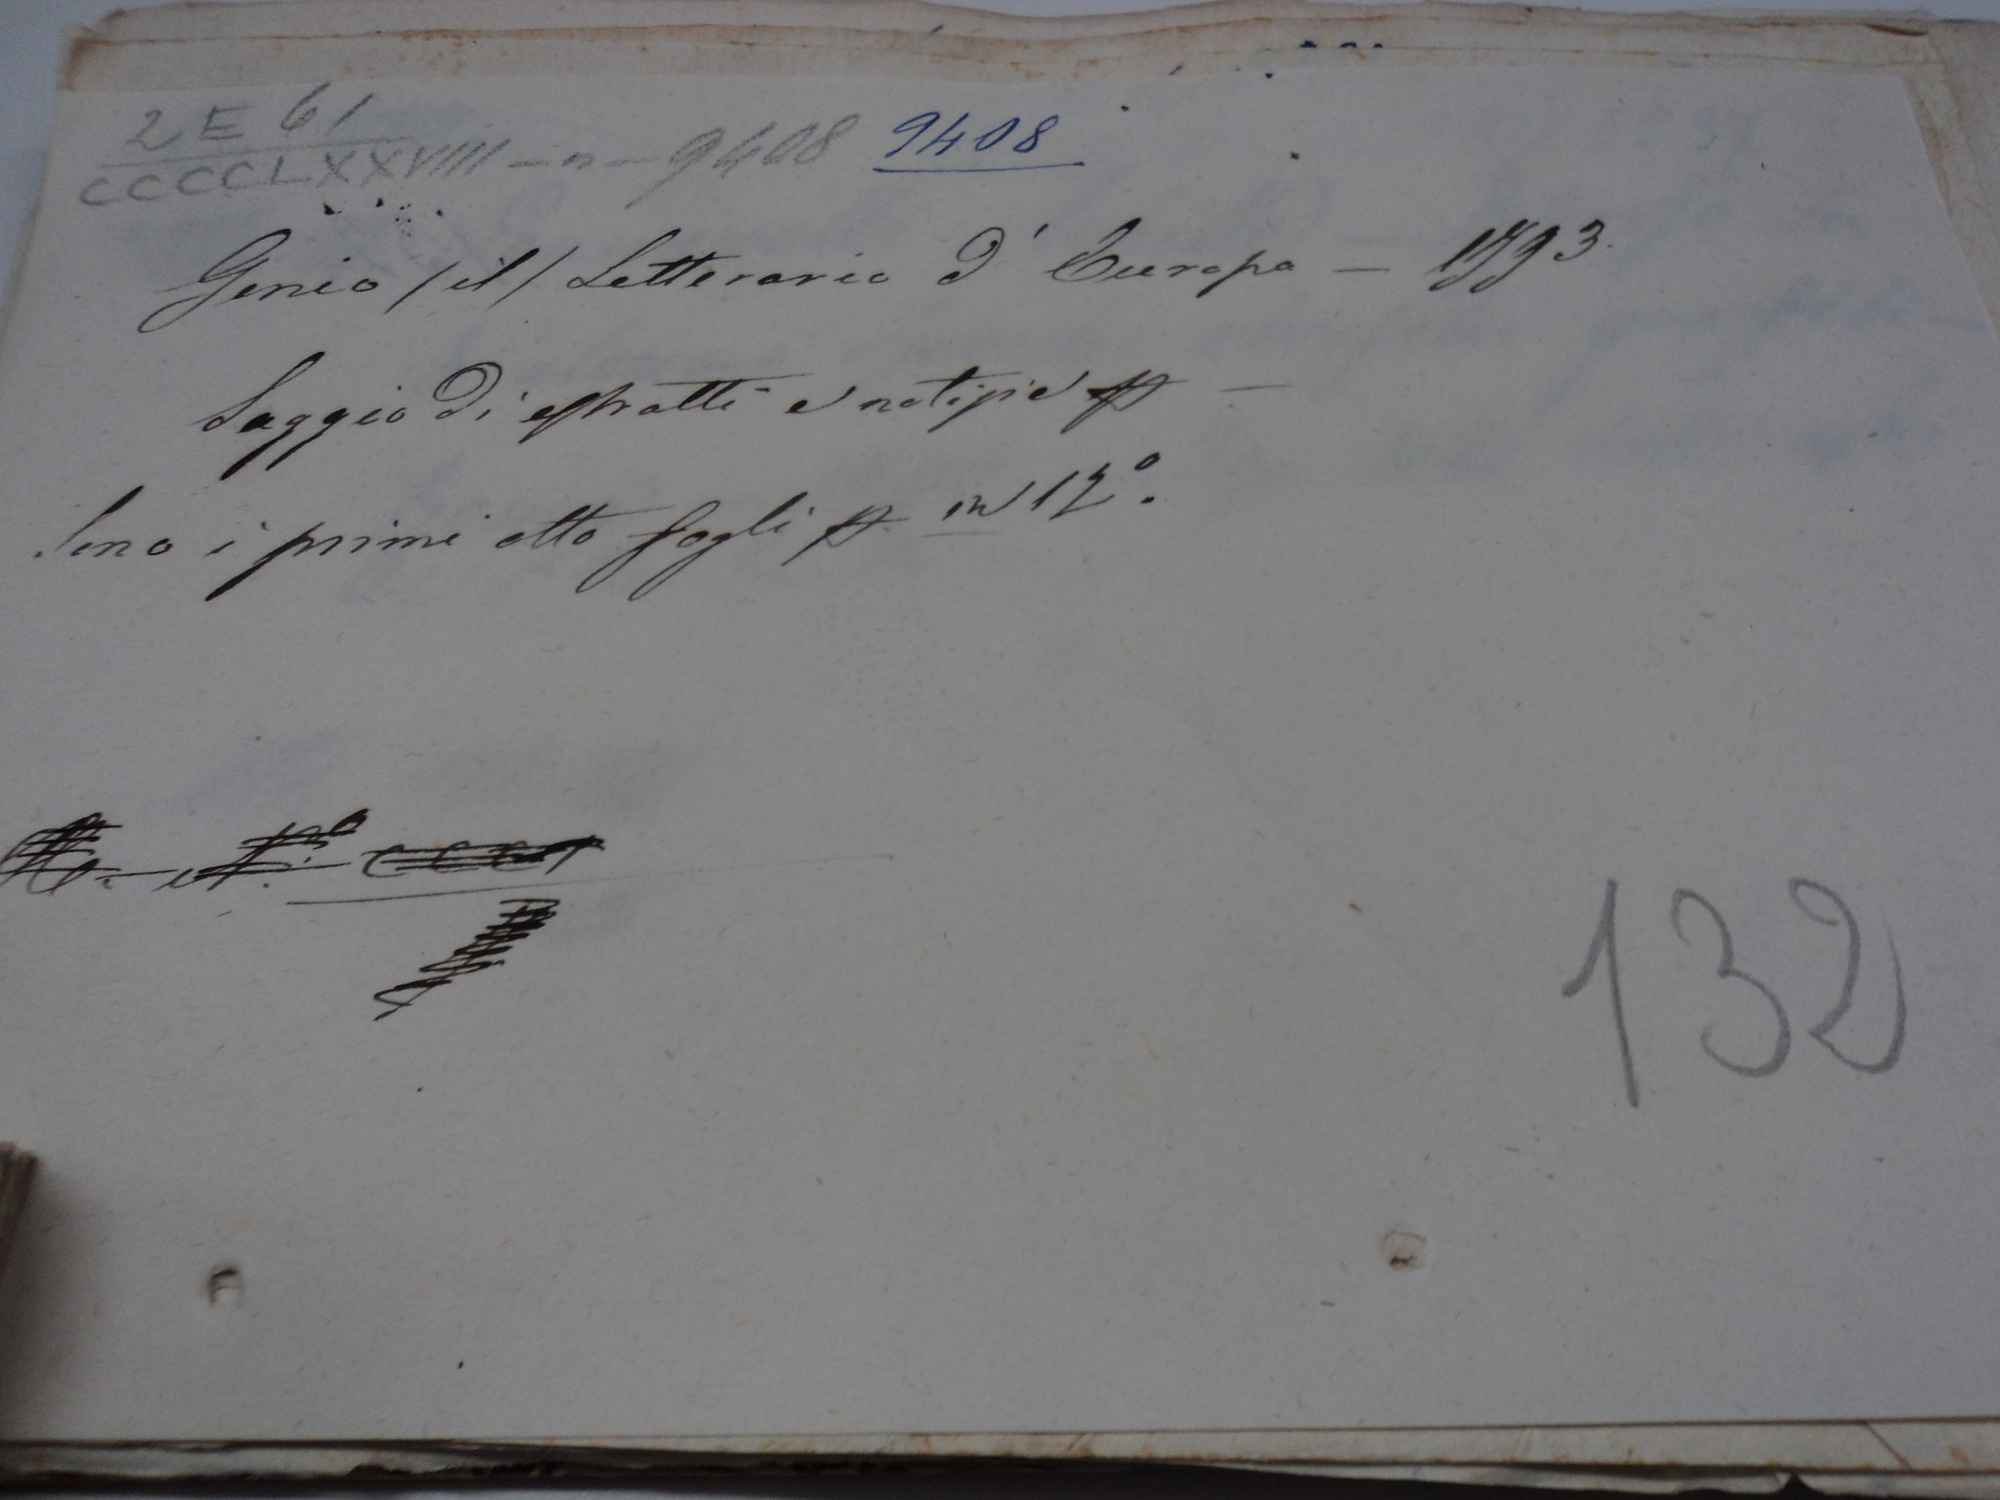 2 E 61
CCCCLXXVIII - n - 9408 9408
Genio (il) Letterario d'Europa — 1793.
Saggio di estratti e notizie —
Sono i primi otto fogli in 12º.
132